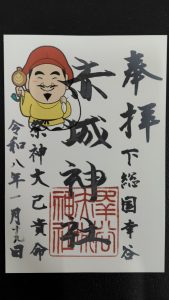 奉拝
下総国幸谷
赤城神社
祭神大己貴命
令和八年一月十九日